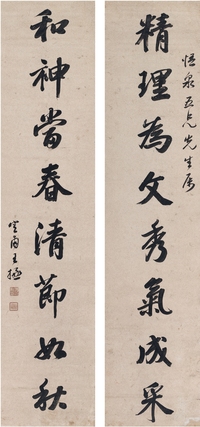 精理為文秀氣成采
悟泉五兄先生屬
和神當春清節如秋
王拯